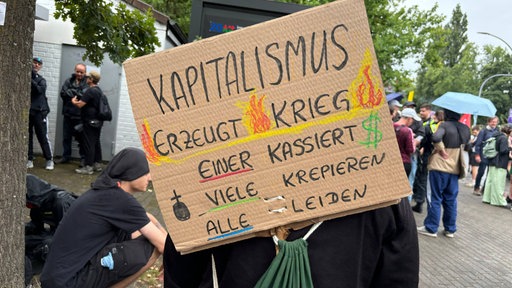 KAPITALISMUS
ERZEUGT KRIEG
EINER KASSIERT $
VIELE KREPIEREN
ALLE LEIDEN